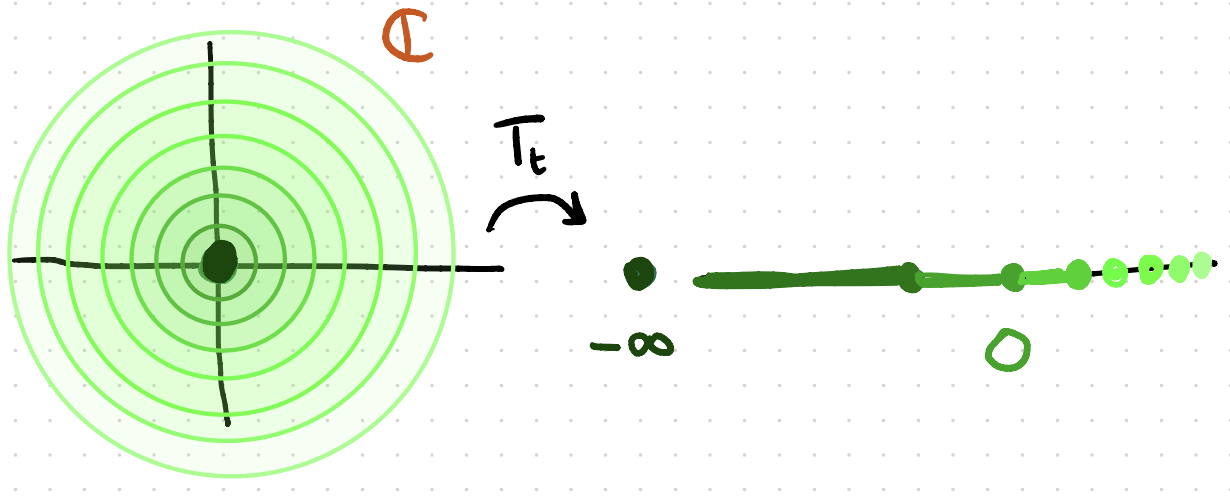 ℂ
T_t
-∞
0